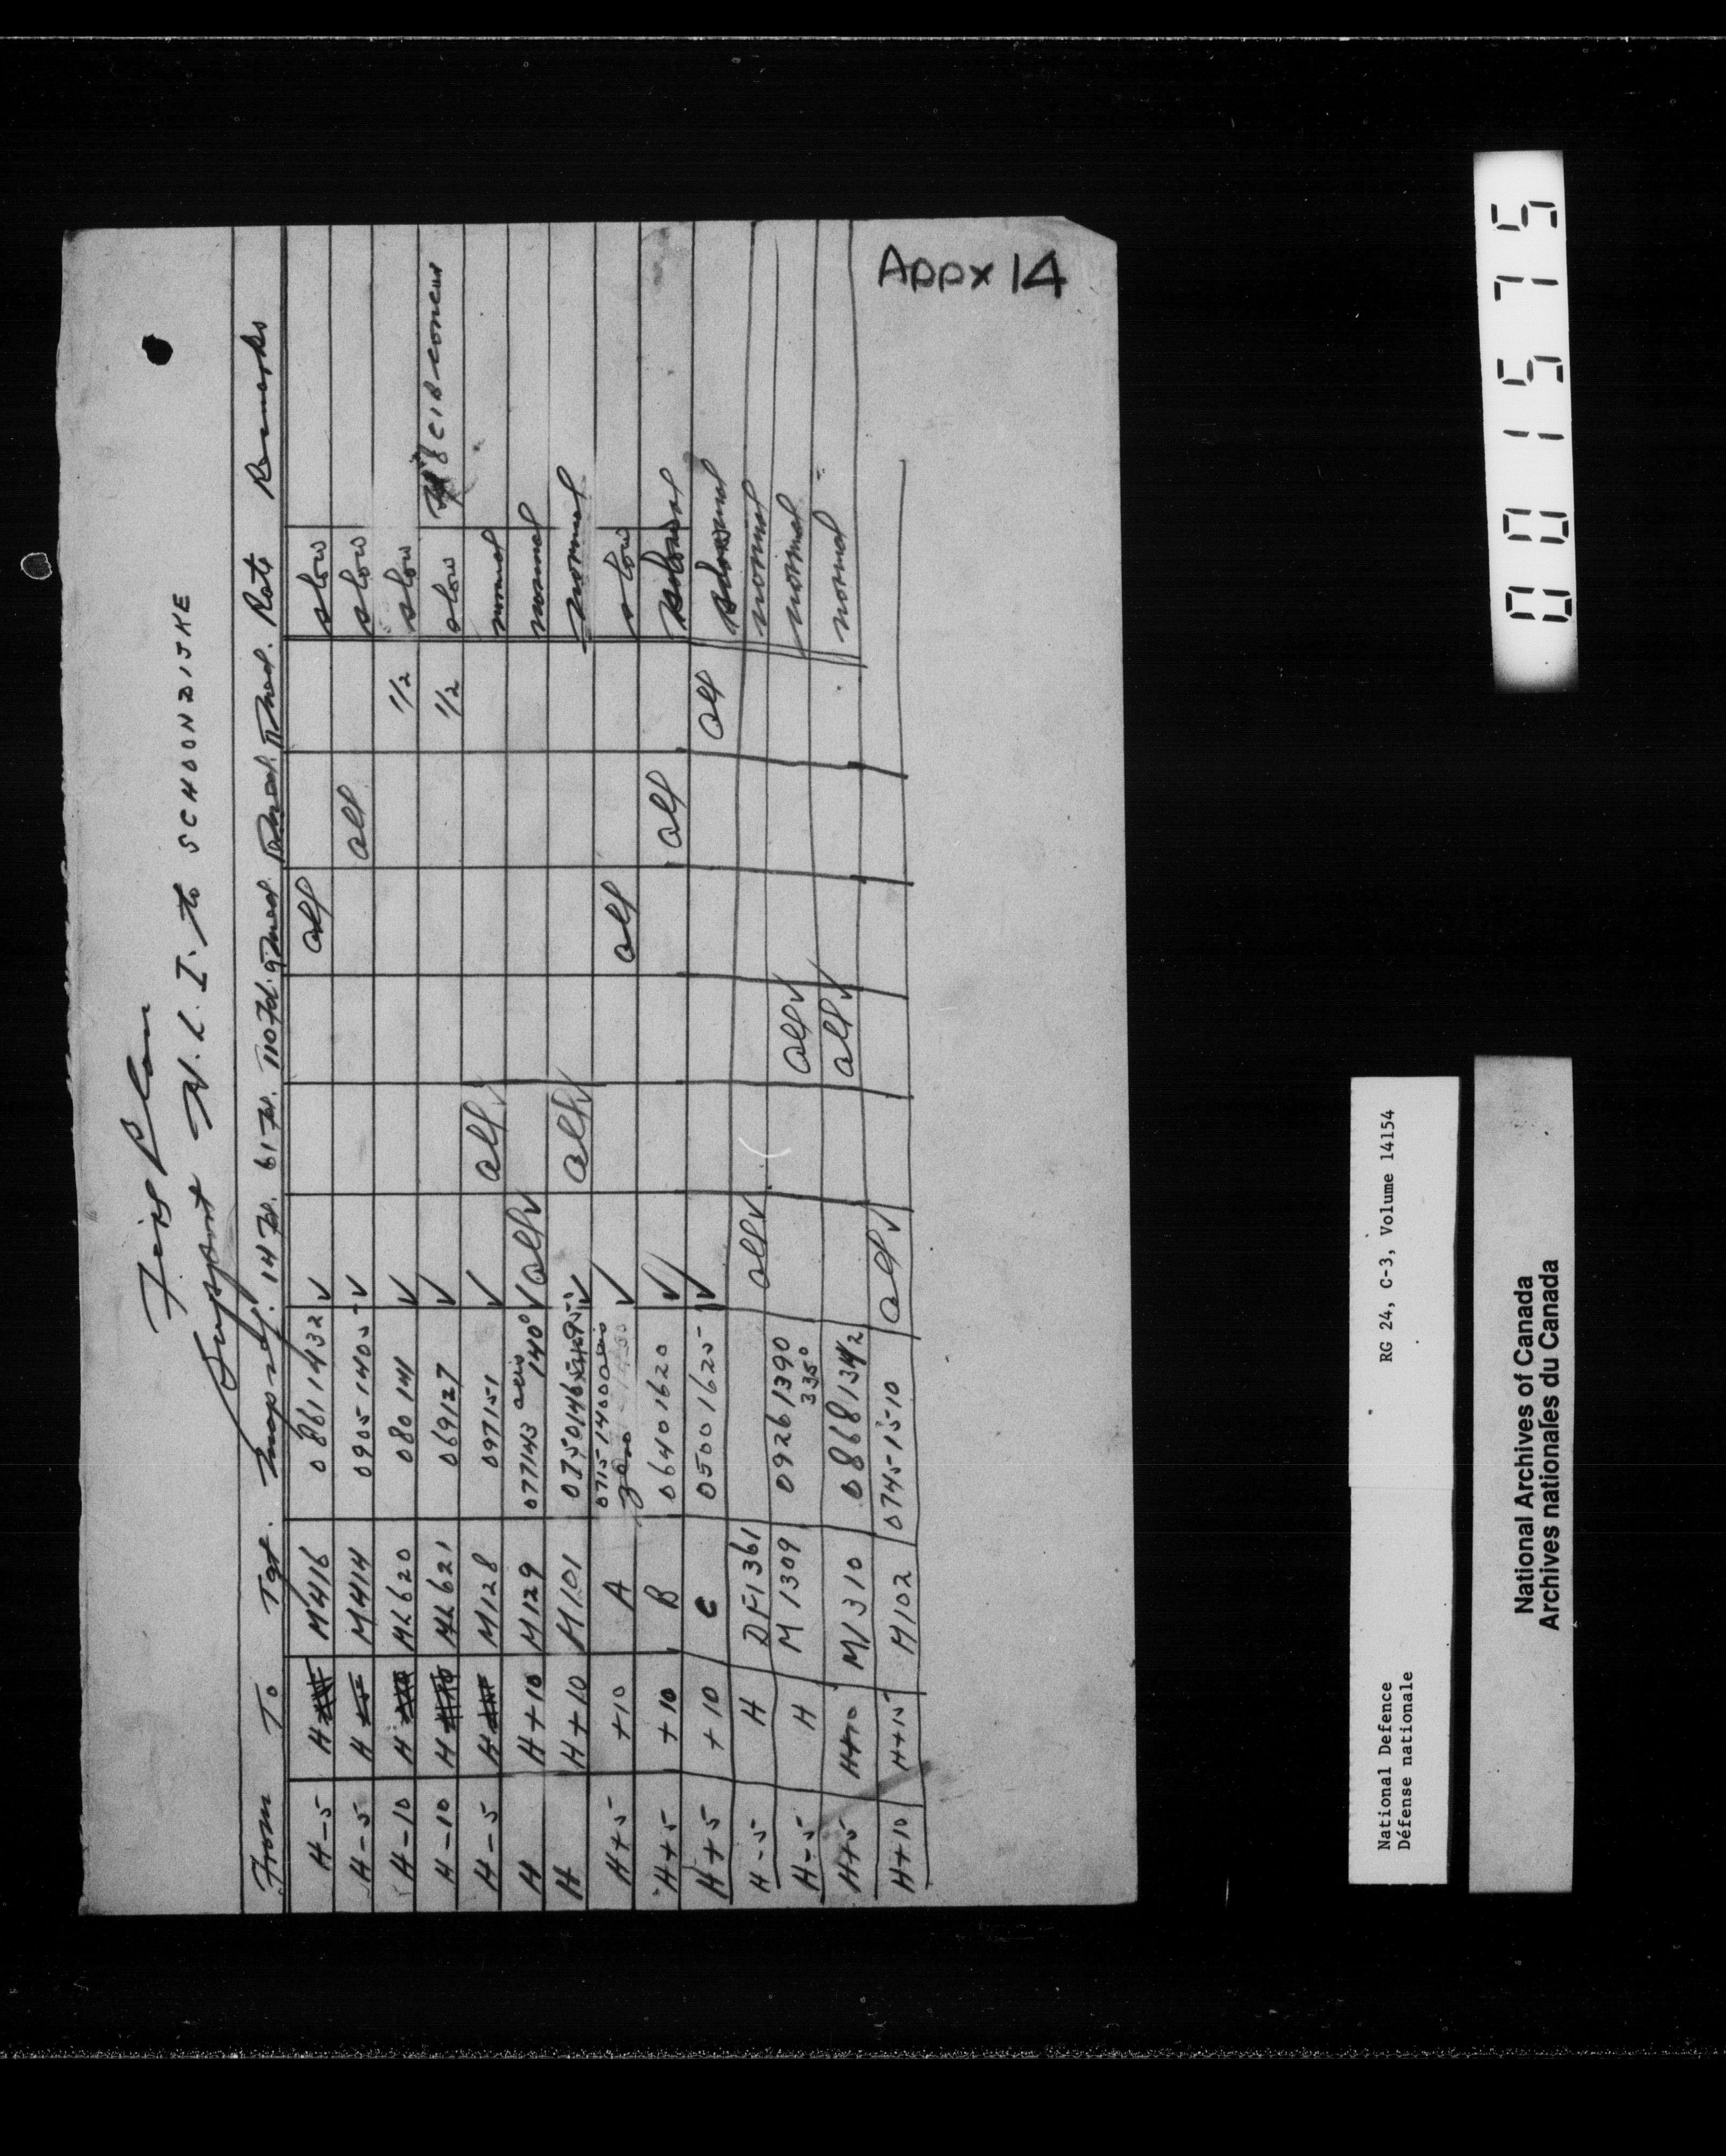 Fire Plan
Support H.L.I. to SCHOONDIJKE
From To Tgt. Map ref. 14 Fd. 61 Fd. 110 Fd. 9 Med. Med. Med. Rate Remarks
H-5 H M416 08611432 ✓ all slow
H-5 H M414 09051405 ✓ all slow
H-10 H ML620 080141 ✓ 1/2 slow
H-10 H ML621 069127 ✓ 1/2 slow
H-5 H M128 097151 ✓ all normal
H H+10 M129 077143 140° ✓ all ✓ normal
H H+10 M101 0750146 ✓ all ✓ normal
H+5 +10 A 07151400 ✓ all slow
H+5 +10 B 06401620 ✓ all
H+5 +10 C 05001625 ✓ all
H-5 H DF1361 all ✓ normal
H-5 H M1309 09261390 335° all ✓ normal
H+5 H+10 M1310 all ✓ normal
H+10 H+15 M102 07451510 all ✓
Appx 14
0001575
National Defence
Défense nationale
RG 24, C-3, Volume 14154
National Archives of Canada
Archives nationales du Canada